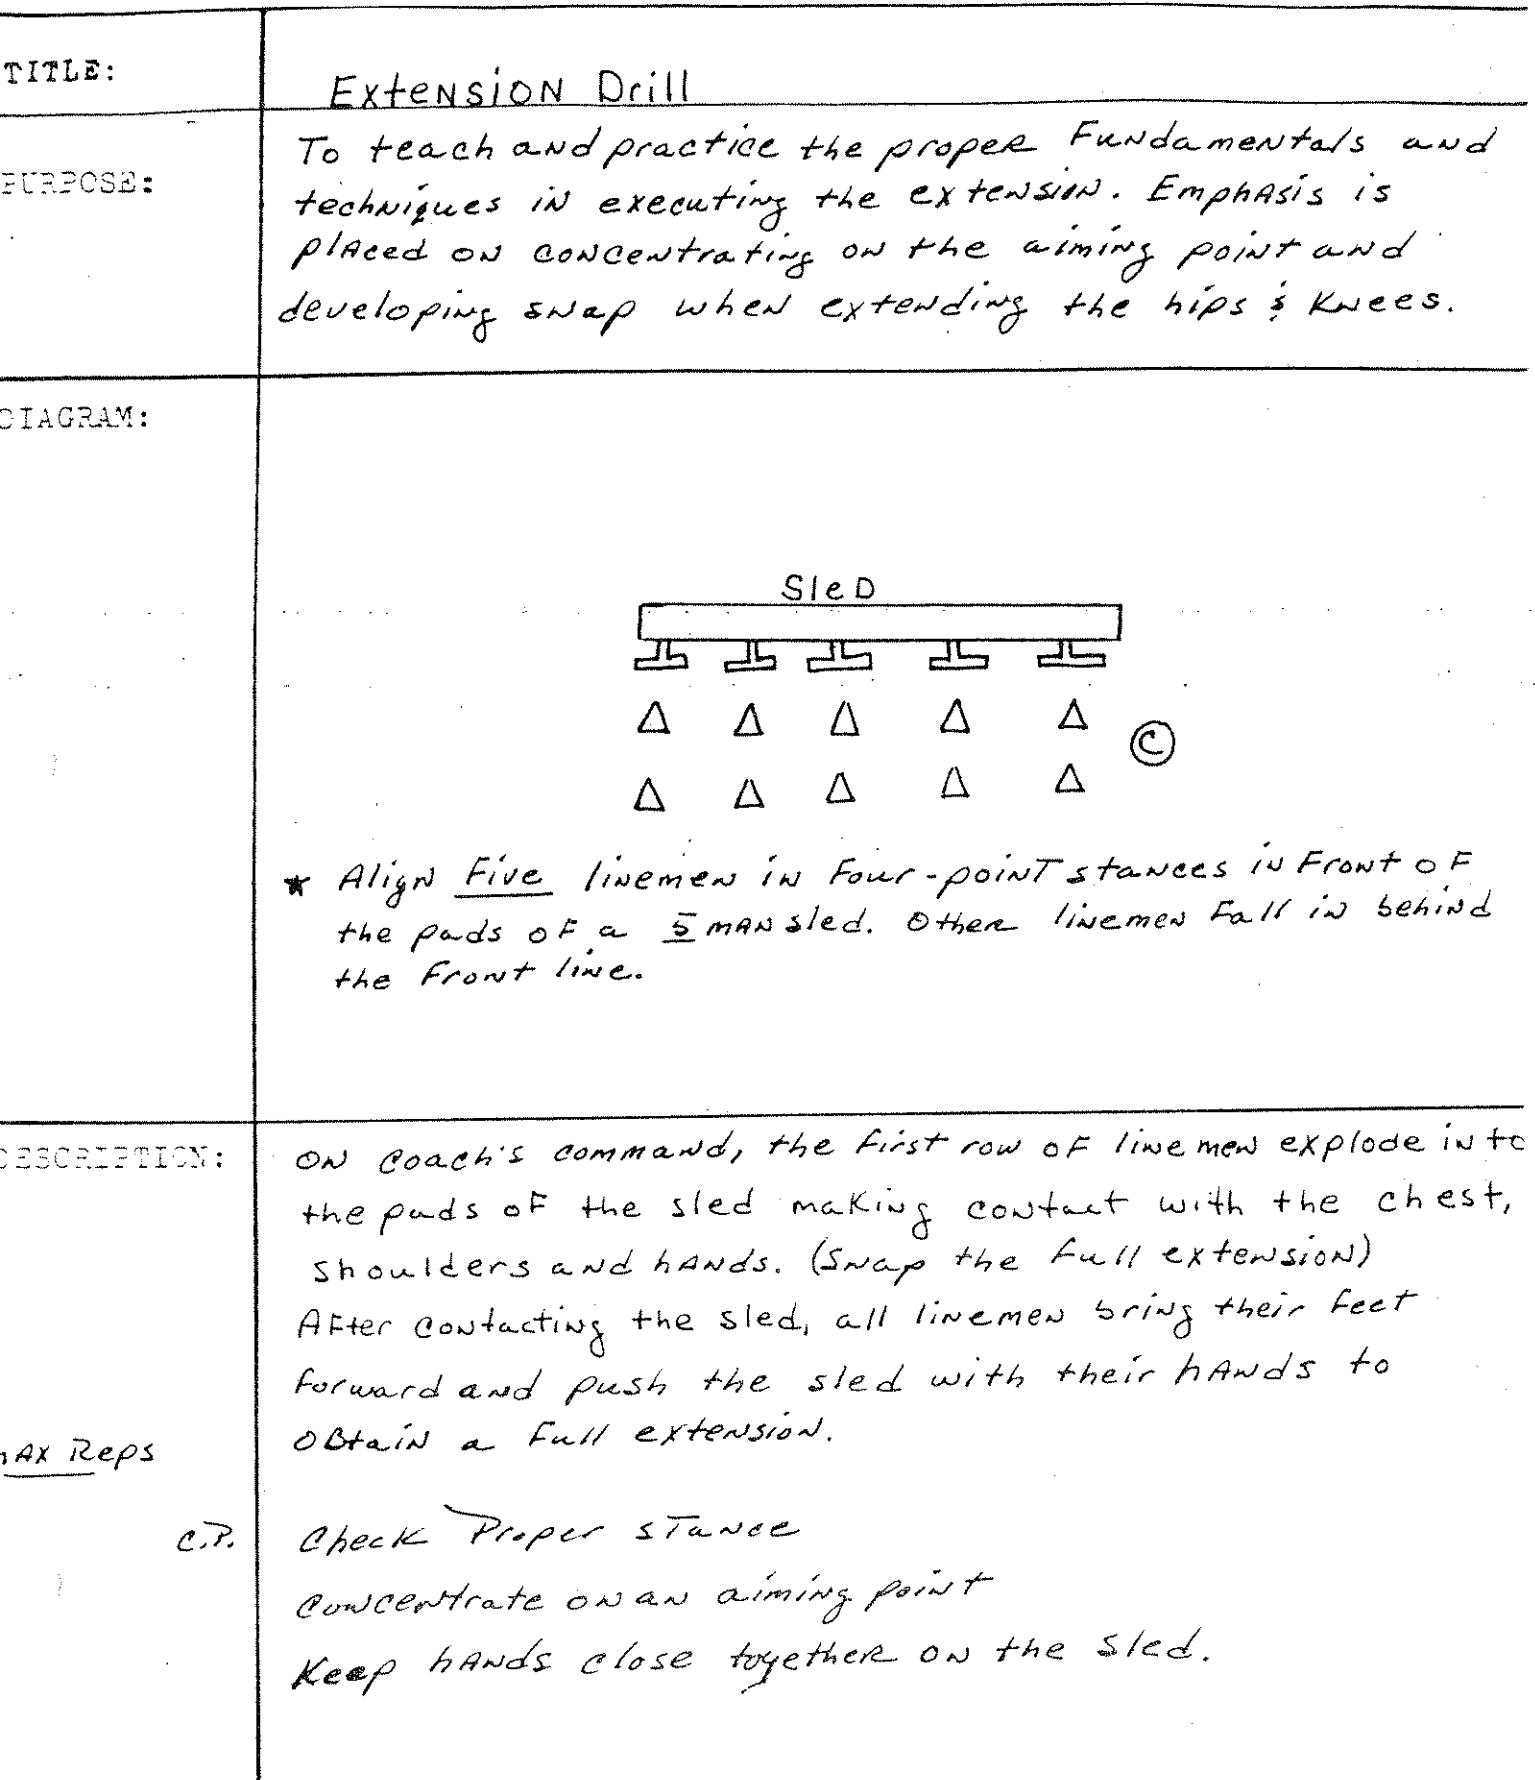 TITLE:
Extension Drill
PURPOSE:
To teach and practice the proper Fundamentals and
techniques in executing the extension. Emphasis is
placed on concentrating on the aiming point and
developing snap when extending the hips & knees.
DIAGRAM:
Sled
C
* Align Five linemen in Four-point stances in Front of
the pads of a 5 man sled. Other linemen Fall in behind
the Front line.
DESCRIPTION:
On coach's command, the first row of linemen explode into
the pads of the sled making contact with the chest,
shoulders and hands. (Snap the full extension)
After contacting the sled, all linemen bring their feet
forward and push the sled with their hands to
obtain a full extension.
Max Reps
C.P.
Check Proper stance
concentrate on an aiming point
Keep hands close together on the sled.